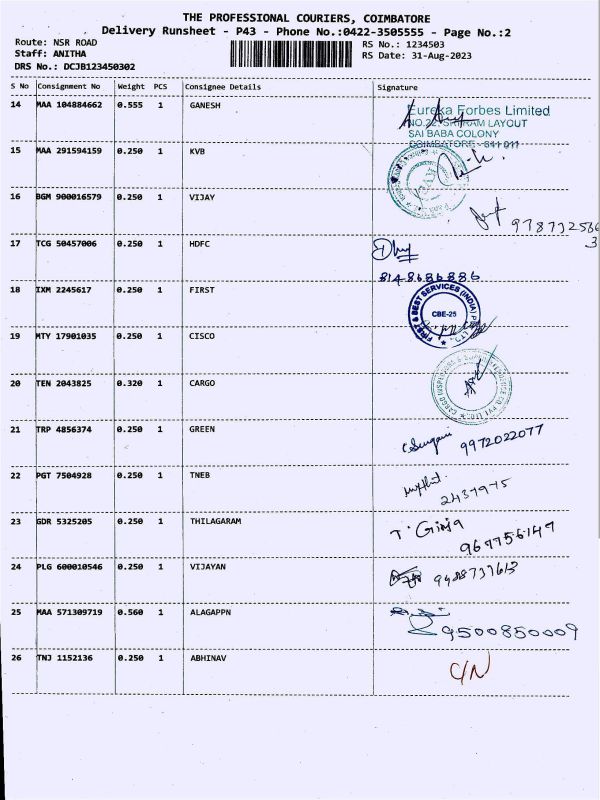 THE PROFESSIONAL COURIERS, COIMBATORE
Delivery Runsheet - P43 - Phone No.:0422-3505555 - Page No.:2
Route: NSR ROAD
RS No.: 1234503
Staff: ANITHA
RS Date: 31-Aug-2023
DRS No.: DCJB123450302
S No Consignment No Weight PCS Consignee Details Signature
14 MAA 104884662 0.555 1 GANESH
Eureka Forbes Limited
SAI BABA COLONY
COIMBATORE - 641 011
15 MAA 291594159 0.250 1 KVB
16 BGM 900016579 0.250 1 VIJAY
17 TCG 50457006 0.250 1 HDFC
8148686886
18 IXM 2245617 0.250 1 FIRST
FIRST & BEST SERVICES (INDIA)
CBE-25
19 MTY 17901035 0.250 1 CISCO
20 TEN 2043825 0.320 1 CARGO
21 TRP 4856374 0.250 1 GREEN
9972022077
22 PGT 7504928 0.250 1 TNEB
23 GDR 5325205 0.250 1 THILAGARAM
T. Girija
24 PLG 600010546 0.250 1 VIJAYAN
25 MAA 571309719 0.560 1 ALAGAPPN
9500850009
26 TNJ 1152136 0.250 1 ABHINAV
C/N